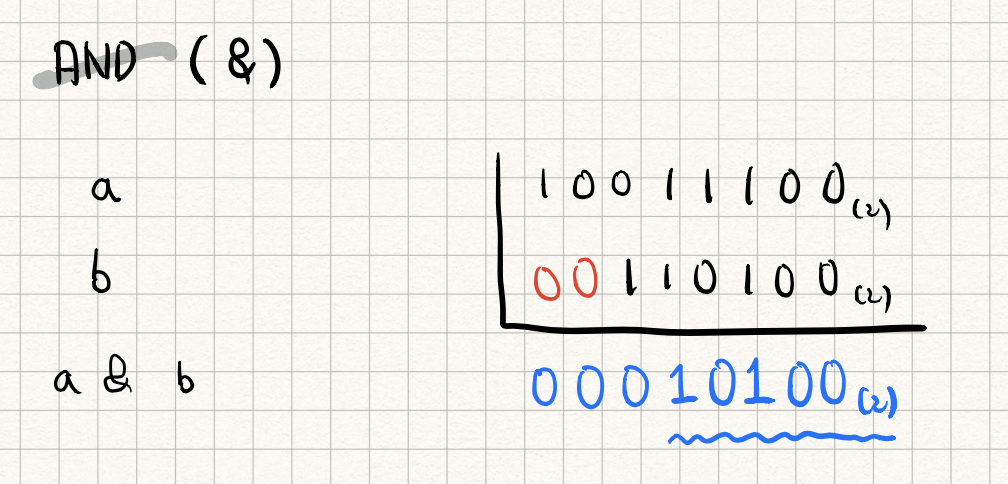 AND (&)
a 10011100(2)
b 00110100(2)
a & b 00010100(2)